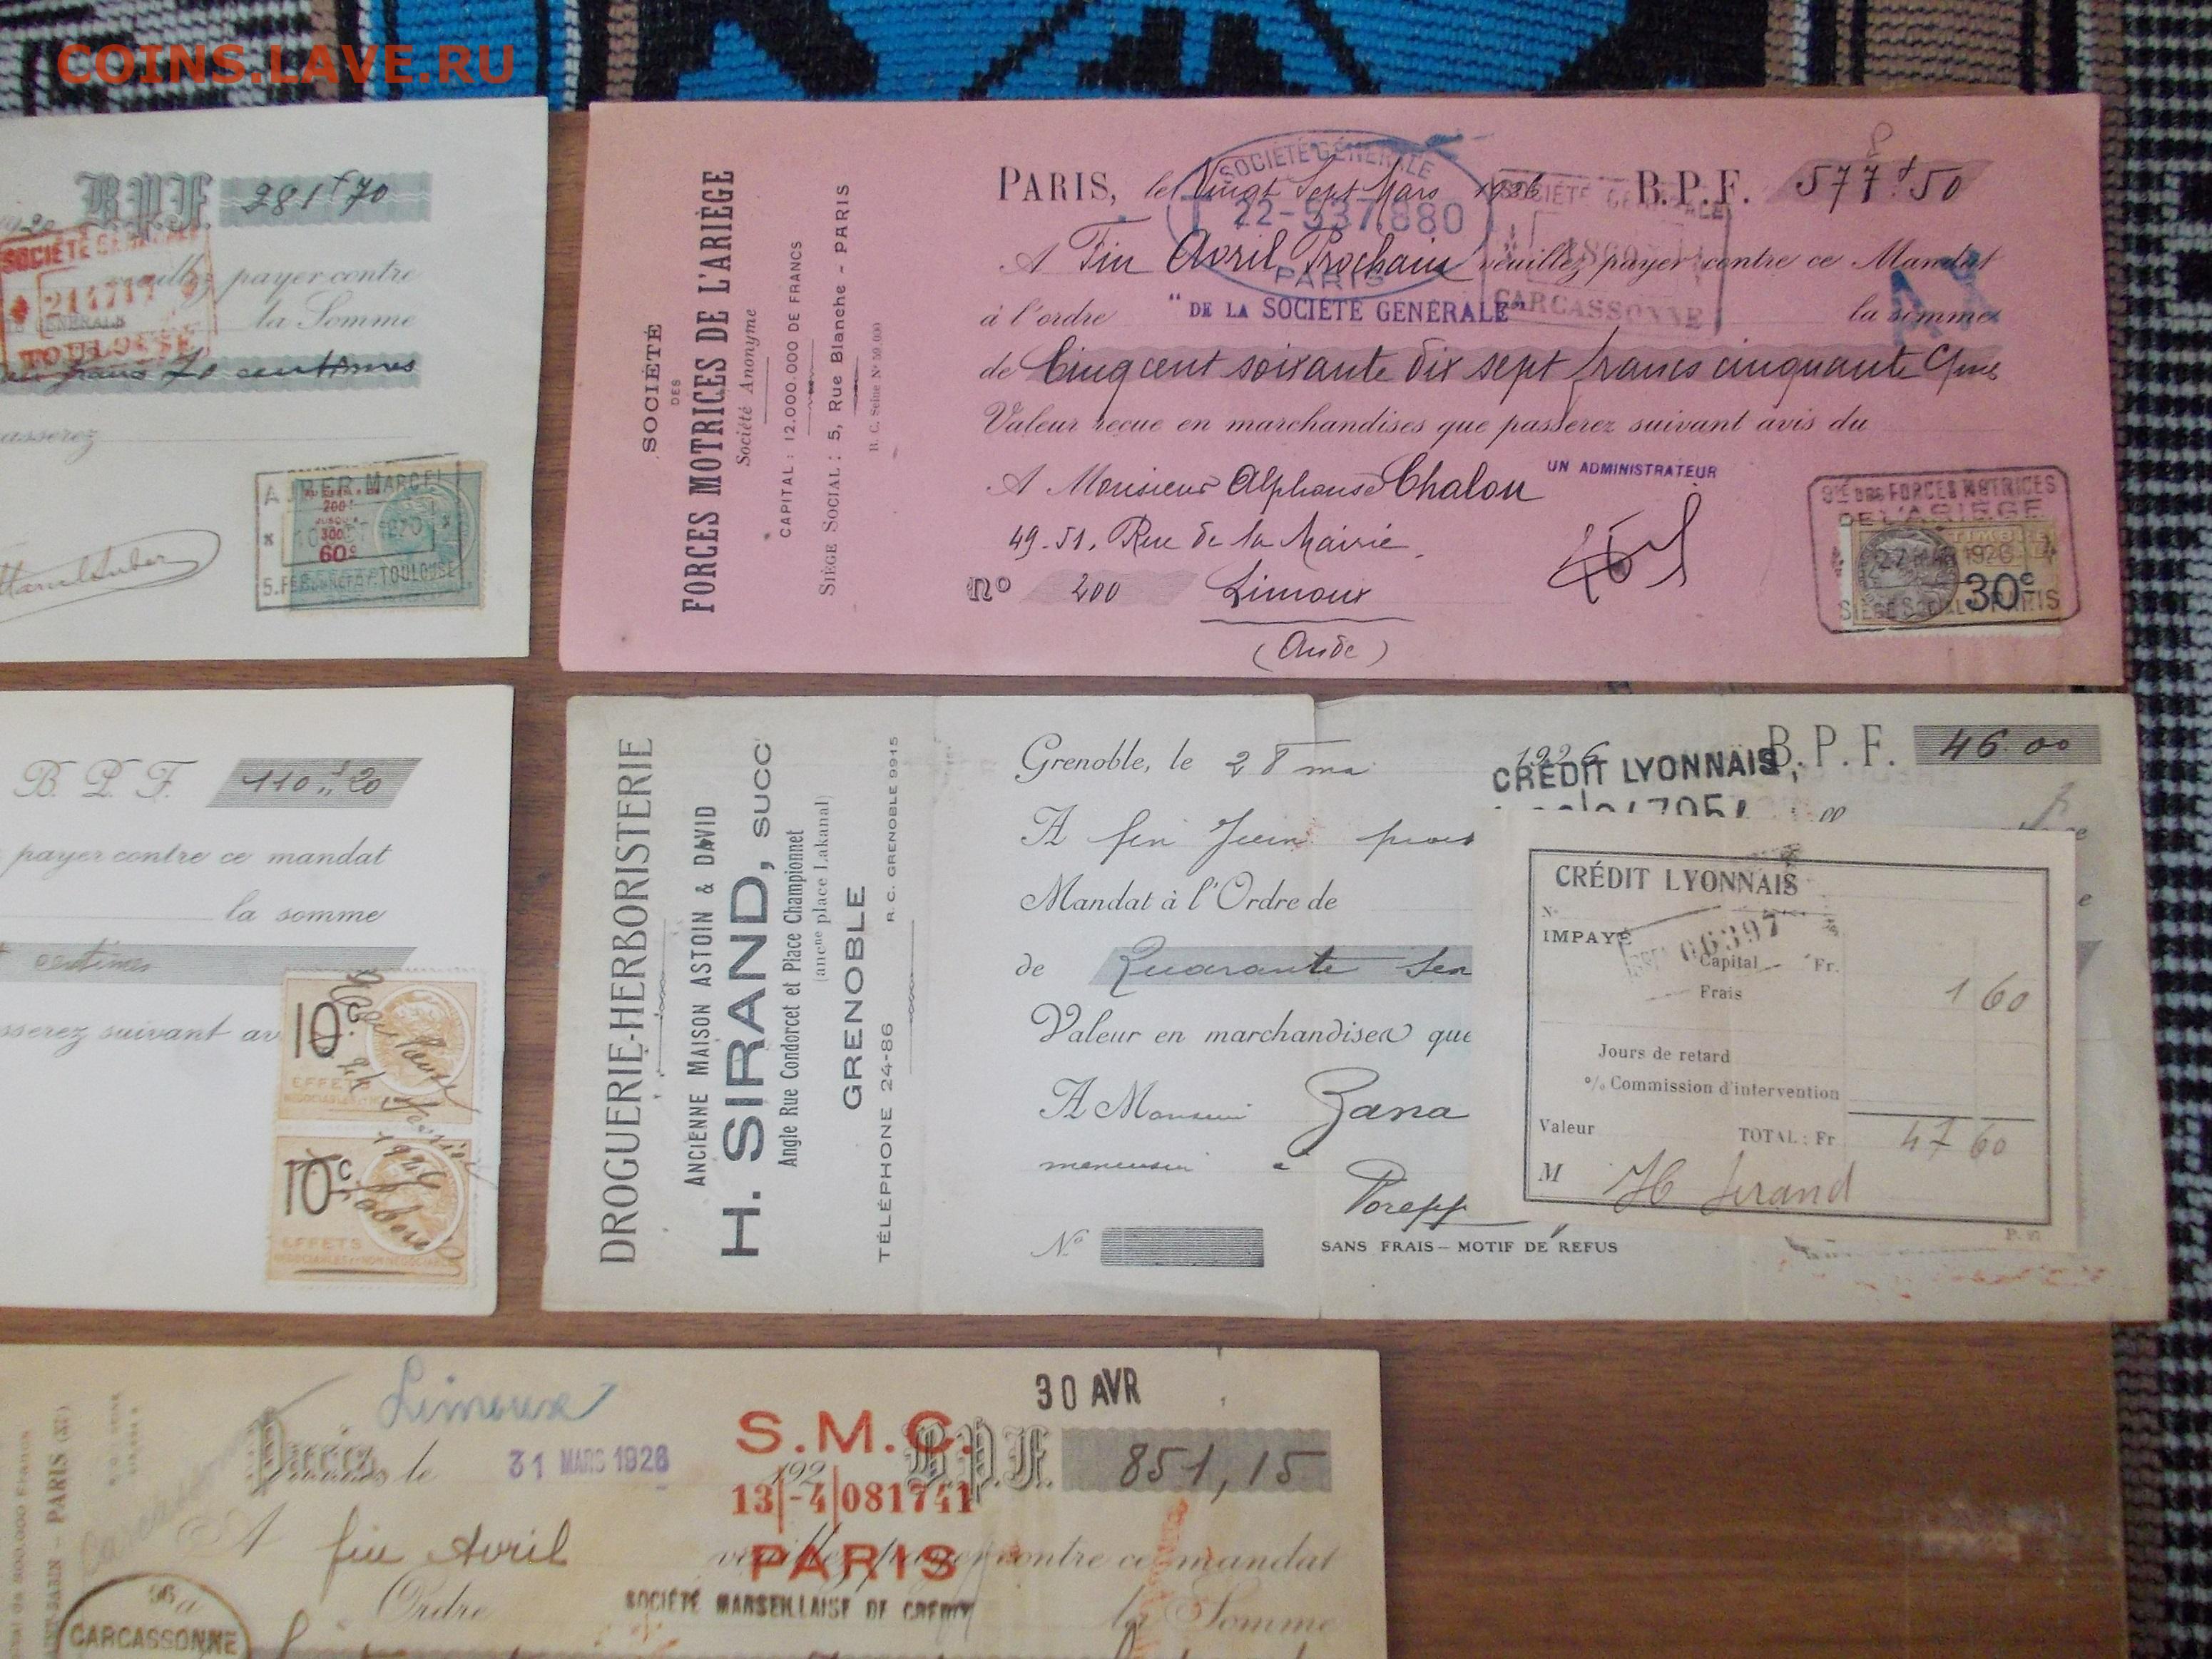 COINS.LAVE.RU
B.P.F. 281 f 70
SOCIÉTÉ GÉNÉRALE
veuillez payer contre
la Somme
TOULOUSE
francs 70 centimes
AUBER MARCEL
200f
JUSQU'A
300f
60c
TOULOUSE
SOCIÉTÉ
DES
FORCES MOTRICES DE L'ARIÈGE
Société Anonyme
CAPITAL : 12.000.000 DE FRANCS
SIÈGE SOCIAL : 5, Rue Blanche - PARIS
PARIS, le Vingt Sept Mars 1926 B.P.F. 577 f 50
SOCIÉTÉ GÉNÉRALE
22-537.880
PARIS
SOCIÉTÉ GÉNÉRALE
CARCASSONNE
A Fin Avril Prochain veuillez payer contre ce Mandat
à l'ordre "DE LA SOCIÉTÉ GÉNÉRALE" la somme
de Cinq cent soixante dix sept francs cinquante Cmes
Valeur reçue en marchandises que passerez suivant avis du
A Monsieur Alphonse Chalou
UN ADMINISTRATEUR
49-51, Rue de la Mairie
No 200 Limoux
(Aude)
Sté DES FORCES MOTRICES
DE L'ARIÈGE
TIMBRE
27 1926
30c
SIÈGE SOCIAL PARIS
B. P. F. 110 f 20
payer contre ce mandat
la somme
centimes
sserez suivant av
10c
EFFETS
10c
EFFETS
DROGUERIE-HERBORISTERIE
ANCIENNE MAISON ASTOIN & DAVID
H. SIRAND, SUCC
Angle Rue Condorcet et Place Championnet
(ancne place Lakanal)
GRENOBLE
TÉLÉPHONE 24-86 R. C. GRENOBLE 9915
Grenoble, le 28 mai 1926 B. P. F. 46.00
CRÉDIT LYONNAIS
A fin Juin
Mandat à l'Ordre de
de Quarante
Valeur en marchandises que
A Monsieur Zana
menuisier à
No
SANS FRAIS - MOTIF DE REFUS
CRÉDIT LYONNAIS
No
IMPAYÉ
06397
Capital Fr.
Frais 1 60
Jours de retard
% Commission d'intervention
Valeur TOTAL : Fr 47 60
M H Sirand
Limoux
30 AVR
Paris le 31 MARS 1926 192 B.P.F. 851,15
S.M.C.
13-4 081741
PARIS
SOCIÉTÉ MARSEILLAISE DE CRÉDIT
A fin Avril veuillez payer contre ce mandat
Ordre la Somme
CARCASSONNE